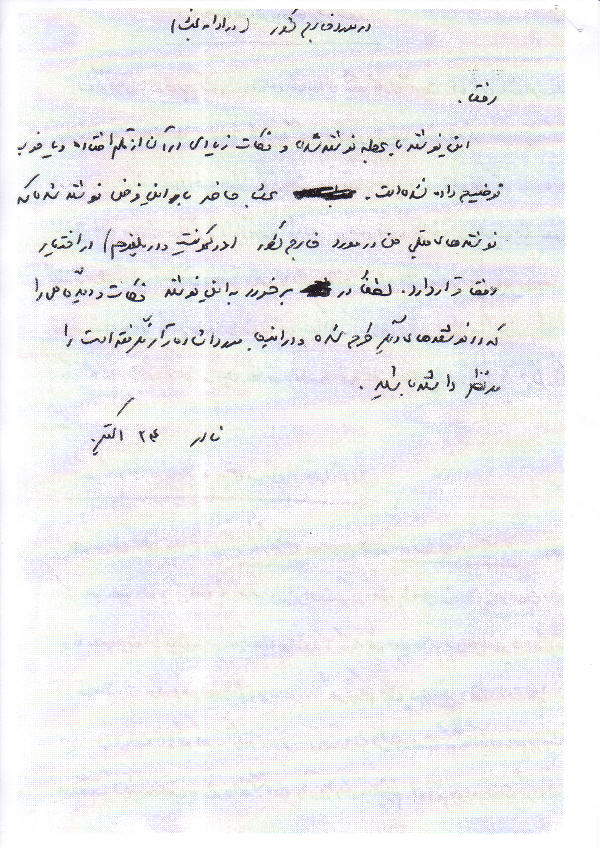 در مورد خارج کشور (در ادامه بحث)
رفقا،
این نوشته با عجله نوشته شده و نکات زیادی در آن از قلم افتاده و یا خوب
توضیح داده نشده است. بحث حاضر با این فرض نوشته شده که
نوشته های قبلی من در مورد خارج کشور (در کمونیست و در پلنوم) در اختیار
رفقا قرار دارد. لطفا در برخورد به این نوشته نکات و های را
که در نوشته های دیگر طرح شده و در اینجا مورد اشاره قرار نگرفته است را
مد نظر داشته باشید.
نادر ۲۴ اکتبر